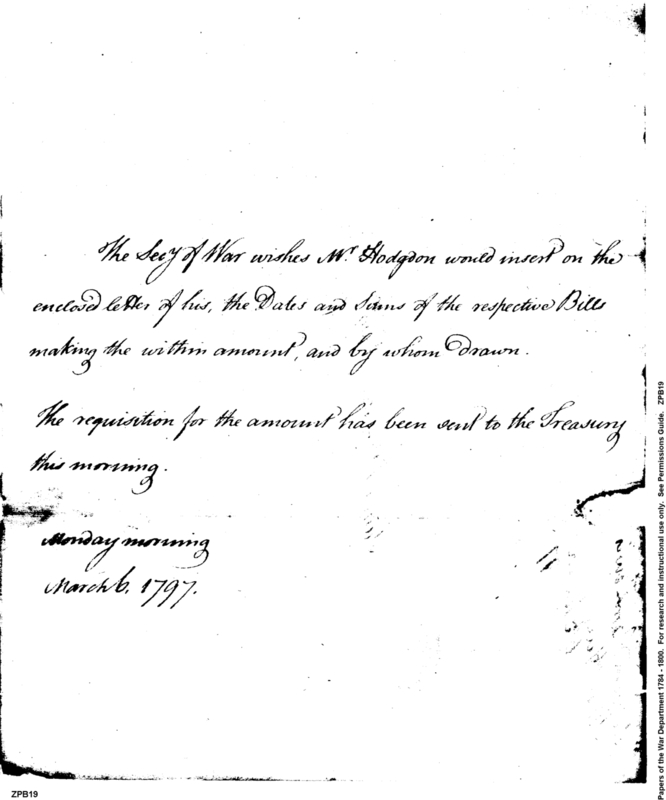 The Secy of War wishes Mr. Hodgdon would insert on the
enclosed letter of his, the Dates and Sums of the respective Bills
making the within amount, and by whom drawn.
The requisition for the amount has been sent to the Treasury
this morning.
Monday morning
March 6. 1797.
Papers of the War Department 1784 - 1800. For research and instructional use only. See Permissions Guide. ZPB19
ZPB19